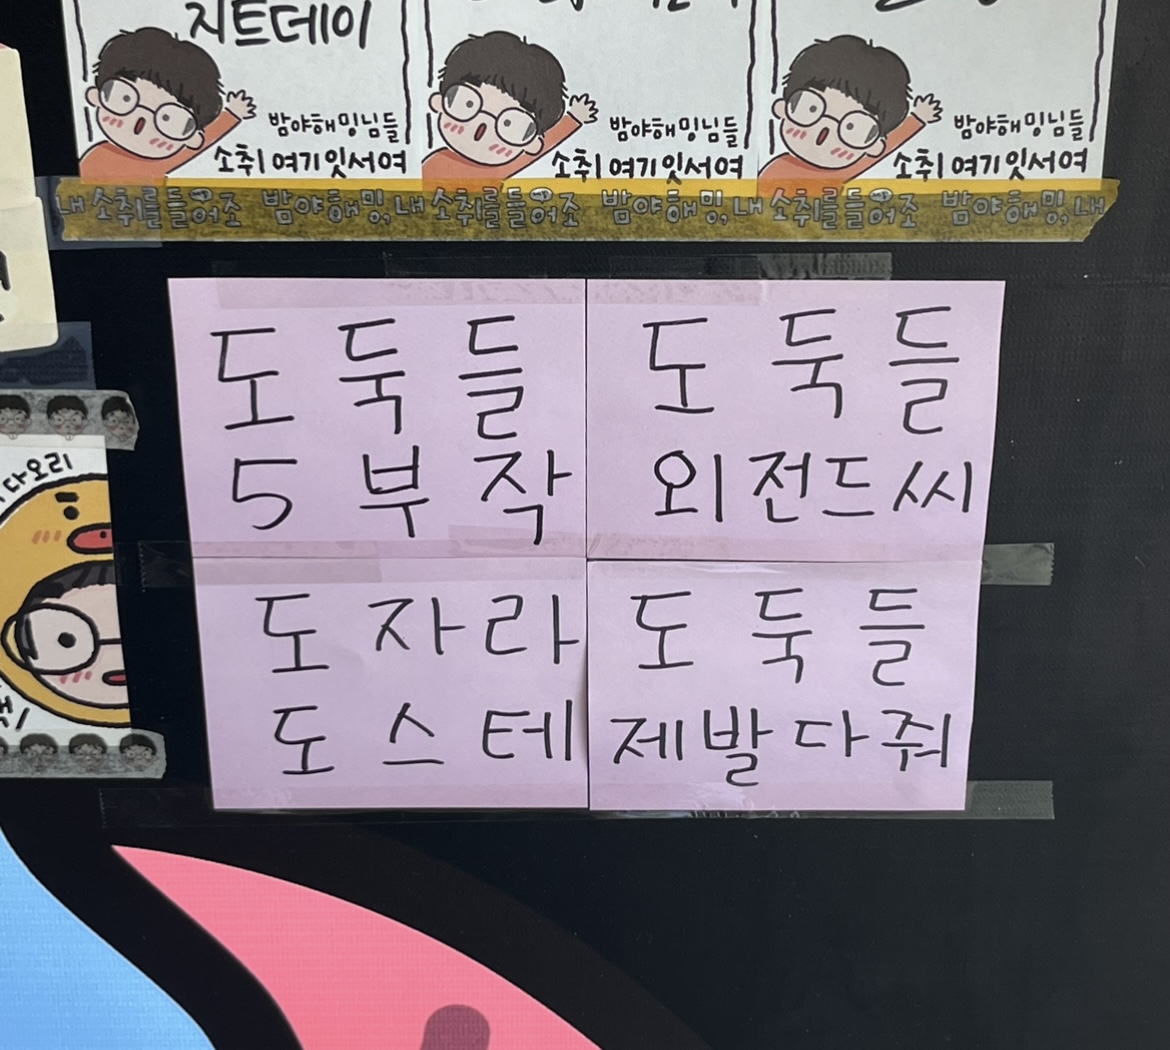 지트데이
밤야해밍님들
소취 여기잇서여
밤야해밍님들
소취 여기잇서여
밤야해밍님들
소취 여기잇서여
내 소취를들어조 밤야해밍, 내 소취를들어조 밤야해밍, 내 소취를들어조 밤야해밍, 내
도둑들
5부작
도둑들
외전드씨
도자라
도스테
도둑들
제발다줘
다오리